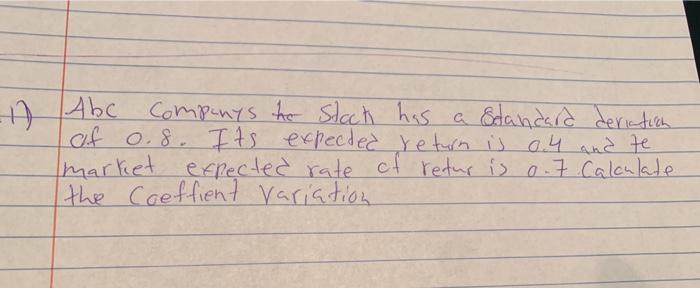 1) Abc Companys Stock has a Standard deviation
of 0.8. Its expected return is 0.4 and te
market expected rate of retur is 0.7 Calculate
the Coeffient Variation